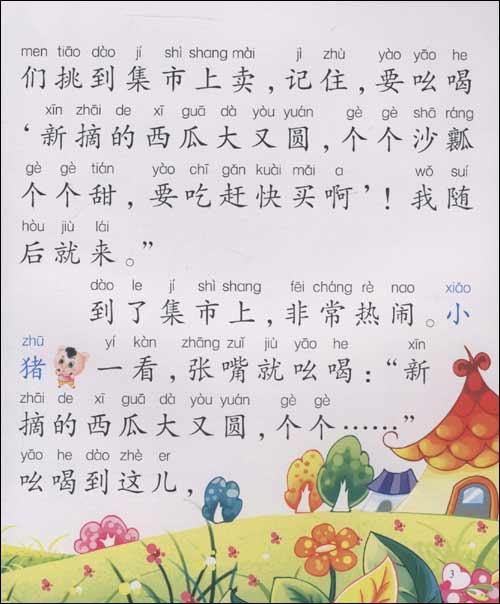 men tiāo dào jí shì shang mài jì zhù yào yāo he
们挑到集市上卖，记住，要吆喝
xīn zhāi de xī guā dà yòu yuán gè gè shā ráng
‘新摘的西瓜大又圆，个个沙瓤
gè gè tián yào chī gǎn kuài mǎi a wǒ suí
个个甜，要吃赶快买啊’！我随
hòu jiù lái
后就来。”
dào le jí shì shang fēi cháng rè nao xiǎo
到了集市上，非常热闹。小
zhū yí kàn zhāng zuǐ jiù yāo he xīn
猪一看，张嘴就吆喝：“新
zhāi de xī guā dà yòu yuán gè gè
摘的西瓜大又圆，个个……”
yāo he dào zhè er
吆喝到这儿，
3